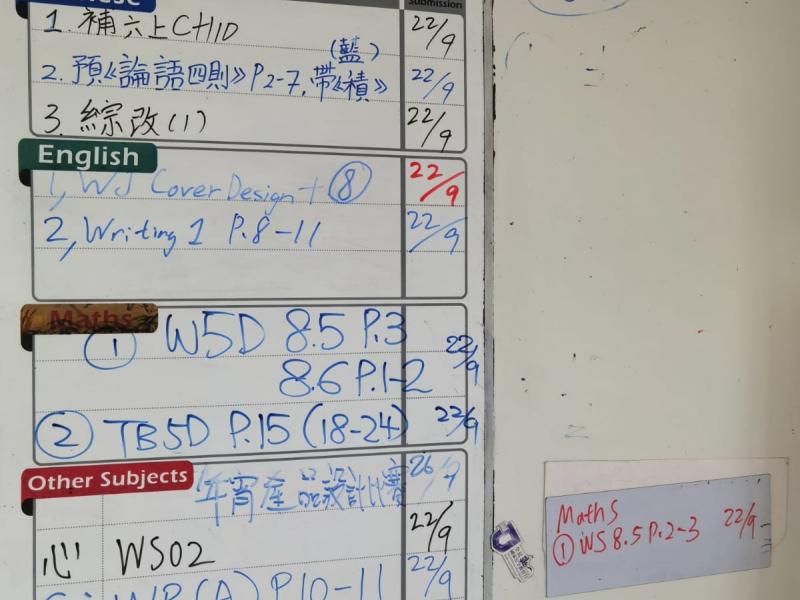 Submission
1. 補六上CH10 22/9
(藍)
2. 預《論語四則》P2-7, 帶《積》 22/9
3. 綜改(1) 22/9
English
1, WJ Cover Design + ⑧ 22/9
2, Writing 1 P.8-11 22/9
Maths
① W5D 8.5 P.3
8.6 P.1-2 22/9
② TB5D P.15 (18-24) 22/9
Other Subjects
年宵產品設計比賽 26/9
心 WS02 22/9
P10-11 22/9
Maths
① WS 8.5 P.2-3 22/9